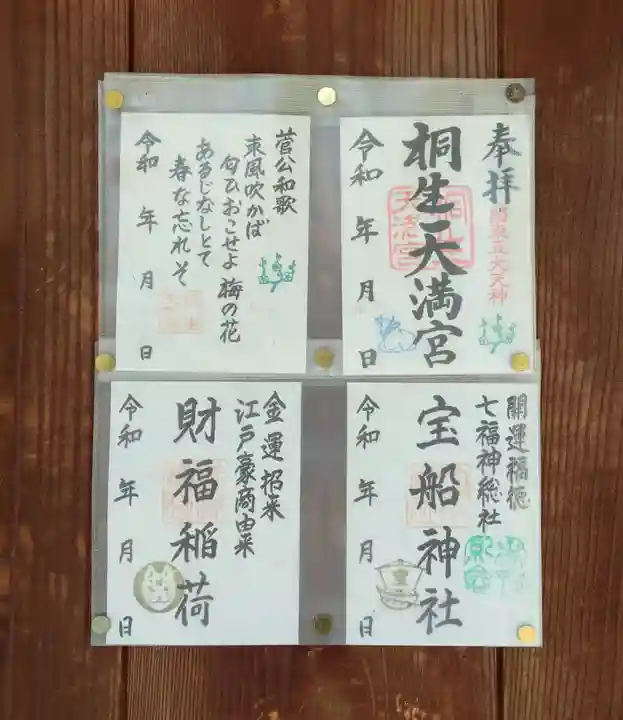 奉拝
関東五大天神
桐生天満宮
令和 年 月 日
菅公和歌
東風吹かば
匂ひおこせよ 梅の花
あるじなしとて
春な忘れそ
令和 年 月 日
開運福徳
七福神総社
宝船神社
令和 年 月 日
金運招来
江戸豪商由来
財福稲荷
令和 年 月 日